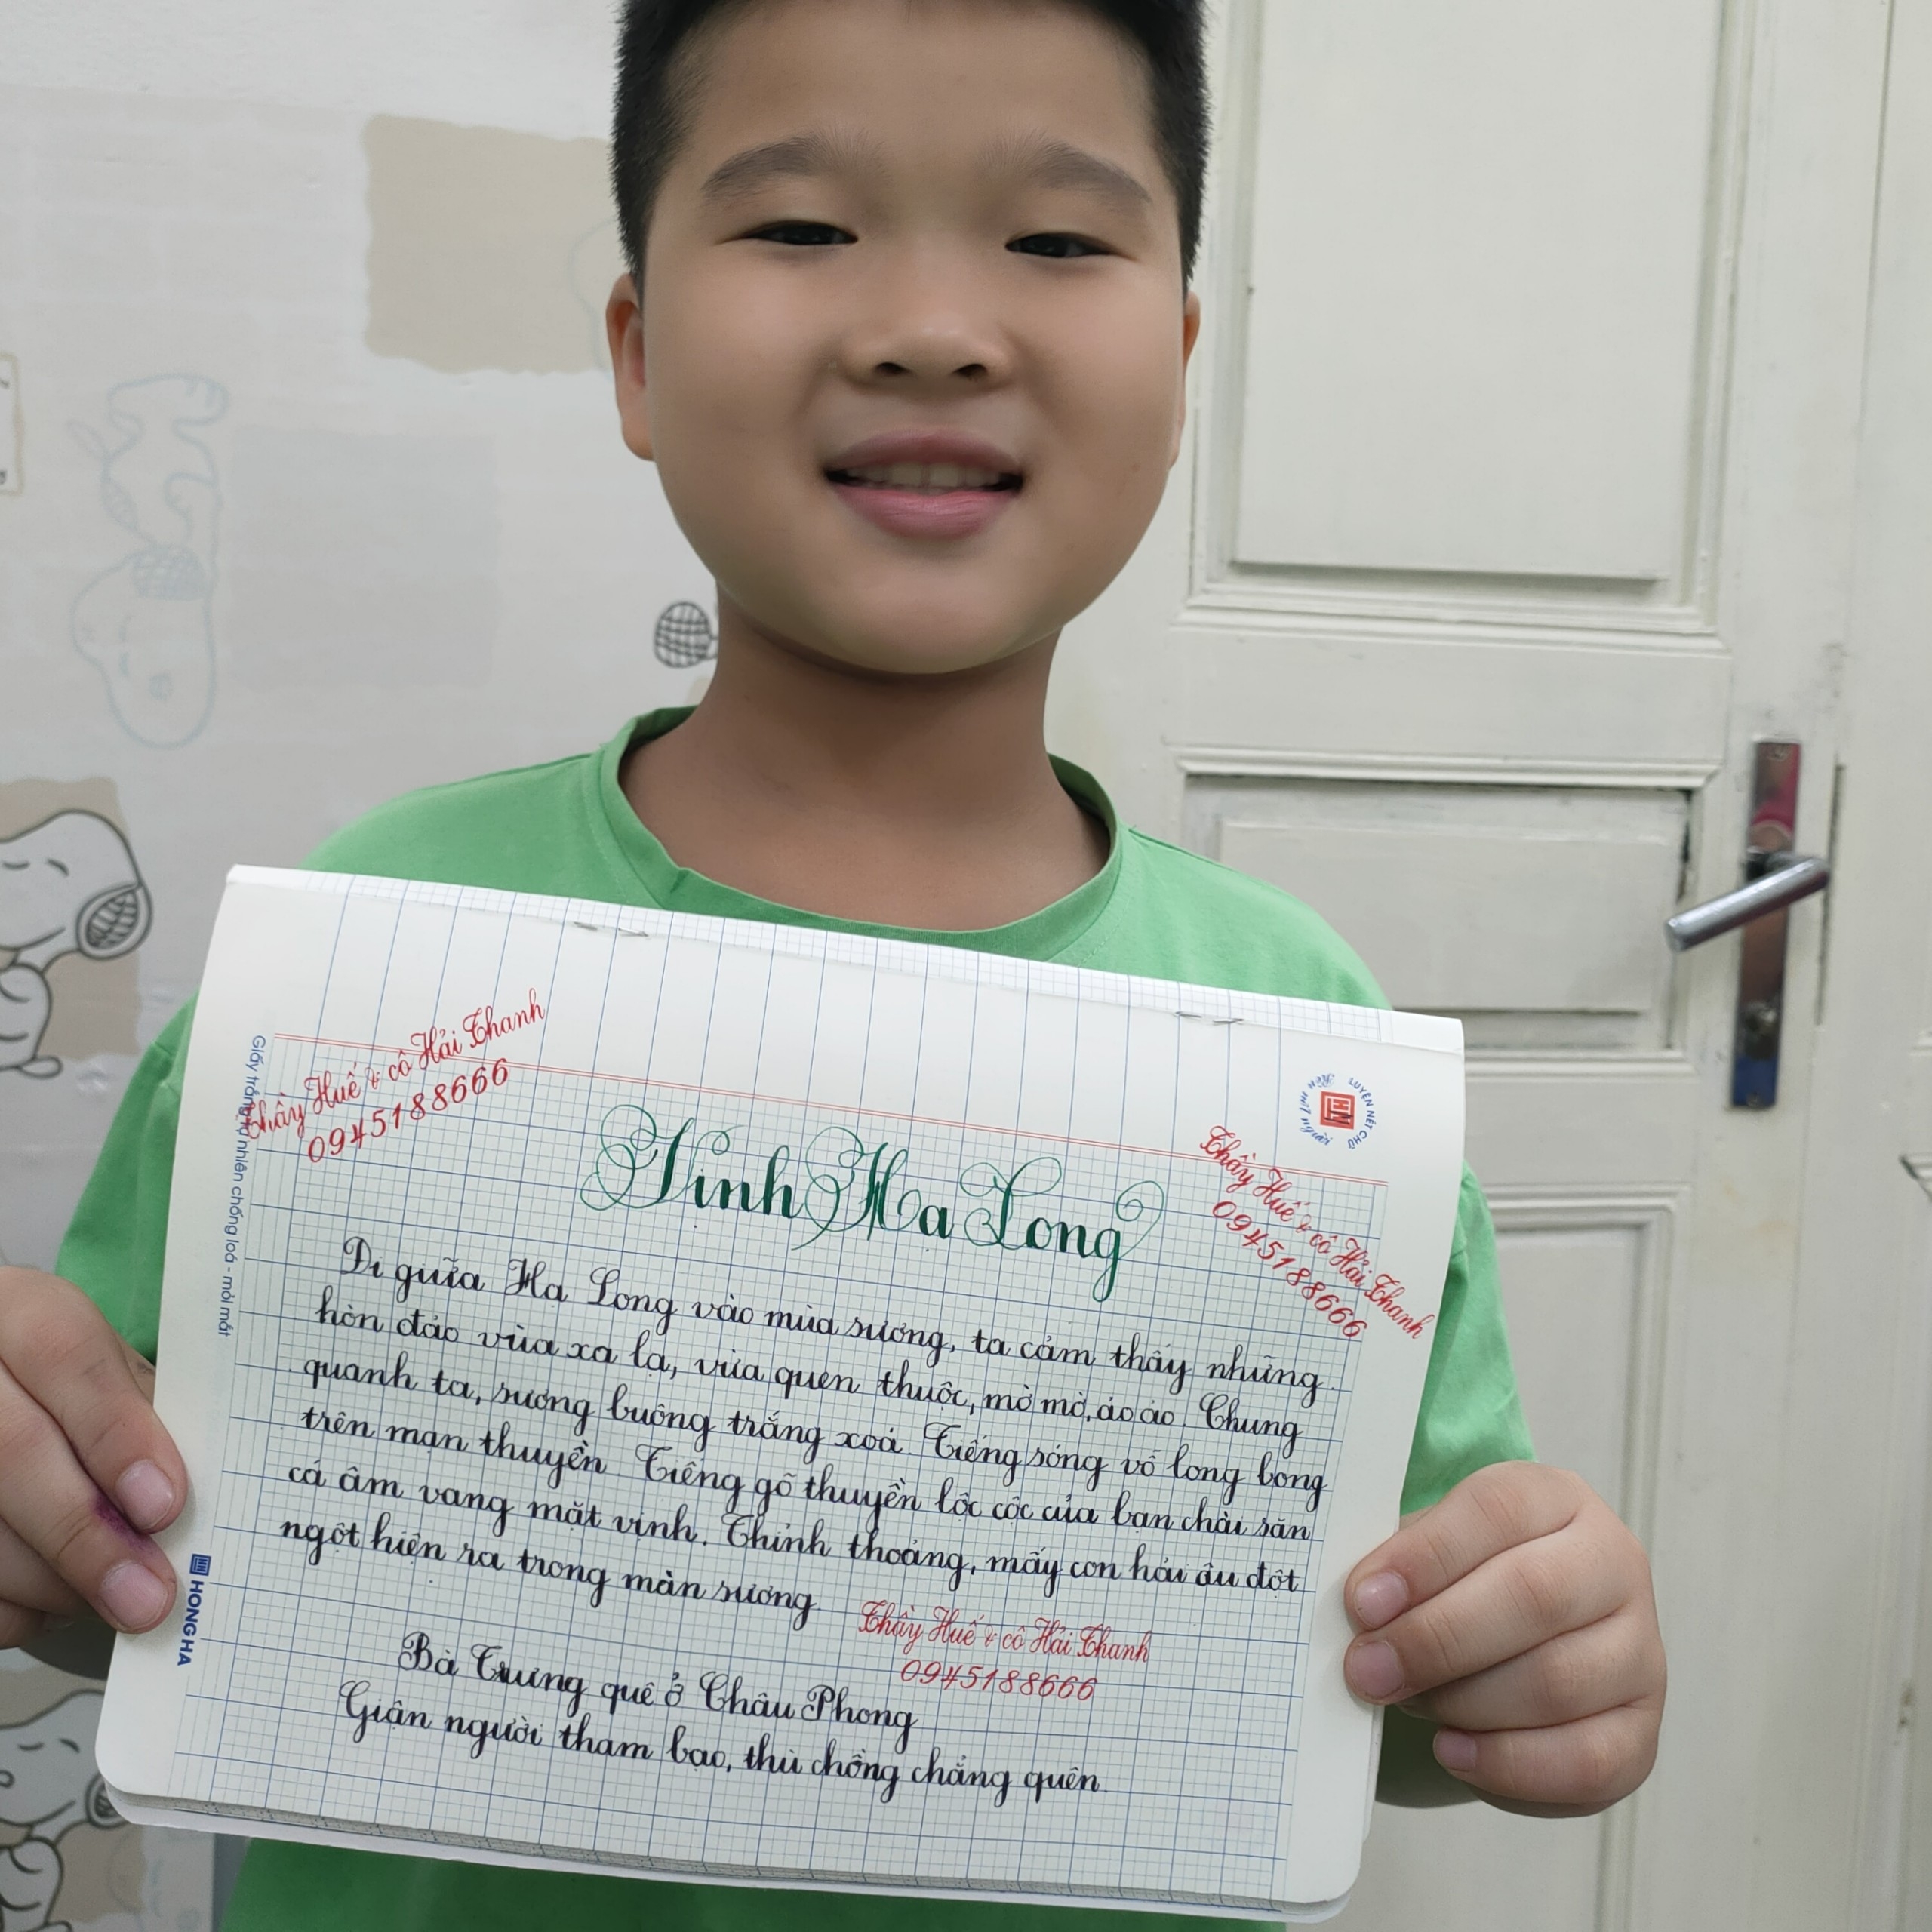 Thầy Huế & cô Hải Thanh
0945188666
LUYỆN NÉT CHỮ
Rèn nết người
Thầy Huế & cô Hải Thanh
0945188666
Vịnh Hạ Long
Đi giữa Hạ Long vào mùa sương, ta cảm thấy những
hòn đảo vừa xa lạ, vừa quen thuộc, mờ mờ, ảo ảo. Chung
quanh ta, sương buông trắng xoá. Tiếng sóng vỗ long bong
trên mạn thuyền. Tiếng gõ thuyền lộc cộc của bạn chài săn
cá âm vang mặt vịnh. Thỉnh thoảng, mấy con hải âu đột
ngột hiện ra trong màn sương.
Thầy Huế & cô Hải Thanh
0945188666
Bà Trưng quê ở Châu Phong
Giận người tham bạo, thù chồng chẳng quên.
Giấy trắng tự nhiên chống loá - mỏi mắt
HONG HA